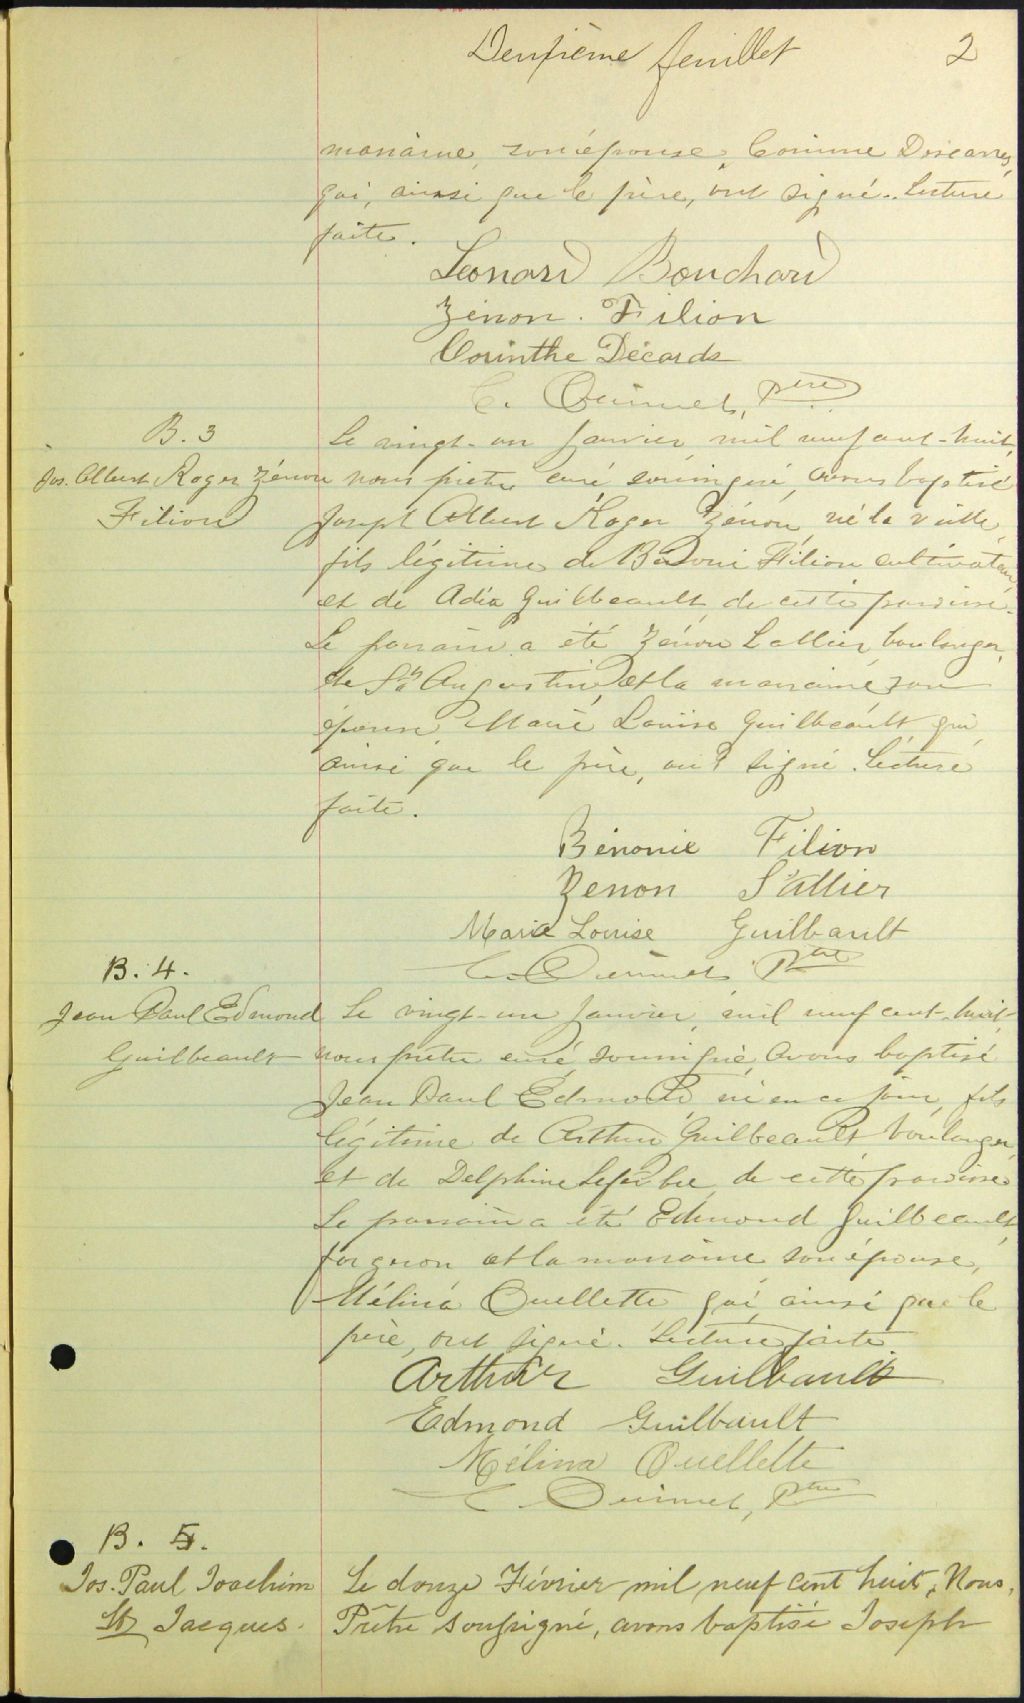 Deuxième feuillet 2
marraine, son épouse, Corinne Descarres,
qui, ainsi que le père, ont signé. Lecture
faite.
Leonard Bouchard
Zénon Filion
Corinthe Décards
C. Ouimet, Ptre
B. 3
Jos. Albert Roger Zénon
Filion
Le vingt-un Janvier mil neuf cent-huit,
nous prêtre curé soussigné, avons baptisé
Joseph Albert Roger Zénon, né la veille,
fils légitime de Bénoni Filion cultivateur
et de Adéa Guilbeault de cette paroisse.
Le parrain a été Zénon Lallier, boulanger,
de St Augustin, et la marraine son
épouse, Marie Louise Guilbeault qui
ainsi que le père, ont signé. Lecture
faite.
Bénonie Filion
Zenon Lallier
Marie Louise Guilbault
C. Ouimet Ptre
B. 4.
Jean Paul Edmond
Guilbeault
Le vingt-un Janvier, mil neuf cent-huit
nous prêtre curé, soussigné, avons baptisé
Jean Paul Edmond né en ce jour, fils
légitime de Arthur Guilbeault boulanger,
et de Delphine Lefebre de cette paroisse.
Le parrain a été Edmond Guilbeault,
forgeron et la marraine son épouse,
Mélina Ouellette qui, ainsi que le
père, ont signé. Lecture faite
Arthur Guilbault
Edmond Guilbault
Mélina Ouellette
C. Ouimet, Ptre
B. 5.
Jos. Paul Joachim
St Jacques.
Le douze Février mil neuf cent huit, Nous,
Prêtre soussigné, avons baptisé Joseph